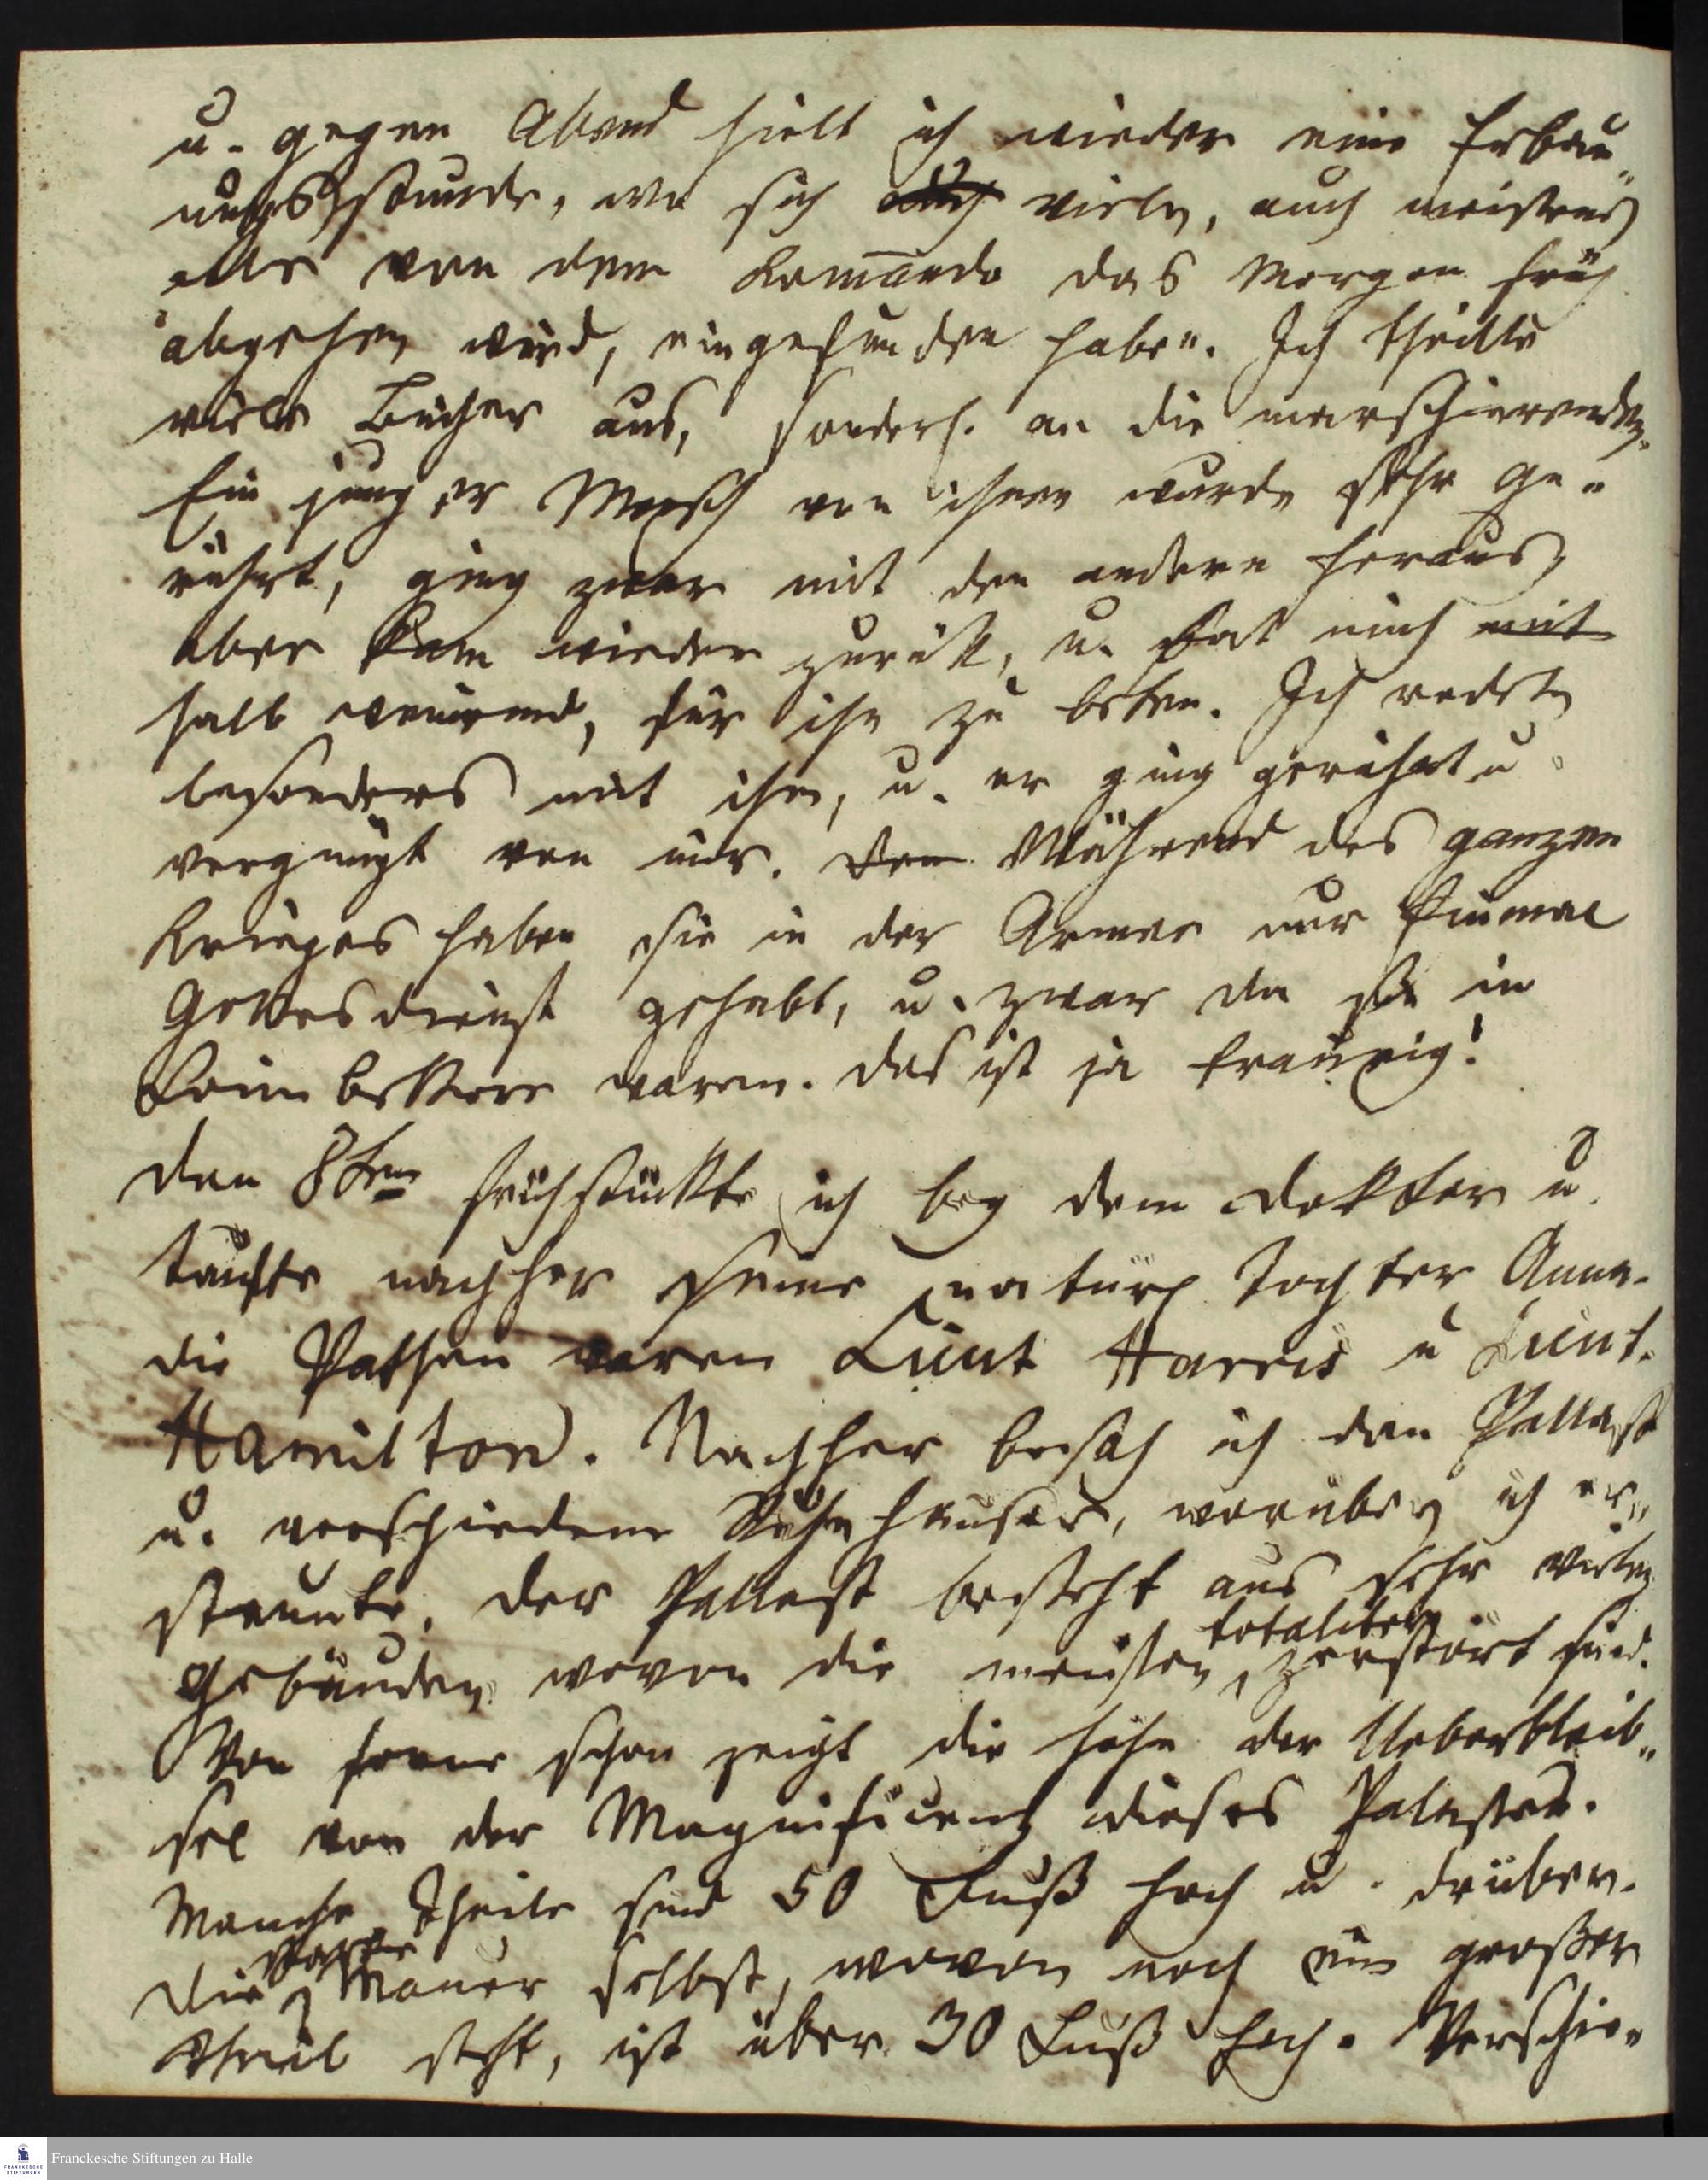 u. gegen Abend hielt ich wieder eine Erbau„
ungsstunde, wo sich auch viele, auch meistens
alle von dem Komando das Morgen früh
abgehen wird, eingefunden haben. Ich theilte
viele Bücher aus, sonderl. an die marschierenden.
Ein junger Mensch von ihnen wurde sehr ge„
rührt, ging zwar mit den andern heraus,
aber kam wieder zurük, u. bat mich mit
halb weinend, für ihn zu beten. Ich redete
besonders mit ihm, u. er ging gerührt u
vergnügt von mir. Von Während des ganzen
Krieges haben sie in der Armee nur Einmal
Gottesdienst gehabt, u. zwar da sie in
Coimbettore waren. Das ist ja traurig!
Den 8ten frühstükte ich bey dem Doktor u.
taufte nachher seine natürl. Tochter Anna.
die Pathen waren Lieut Harris u Lieut.
Hamilton. Nachher besah ich den Pallast
u. verschiedene Ruhehäuser, worüber ich er„
staunte. Der Pallast besteht aus sehr vielen
Gebäuden wovon die meisten totaliter zerstört sind.
Von ferne schon zeigt die Höhe der Ueberbleib„
sel von der Magnificenz dieses Palastes.
Manche Theile sind 50 Fuß hoch u. drüber.
Die starke Mauer selbst, wovon noch ein großer
Theil steht, ist über 30 Fuß hoch. Verschie„
Franckesche Stiftungen zu Halle
FRANCKESCHE
STIFTUNGEN